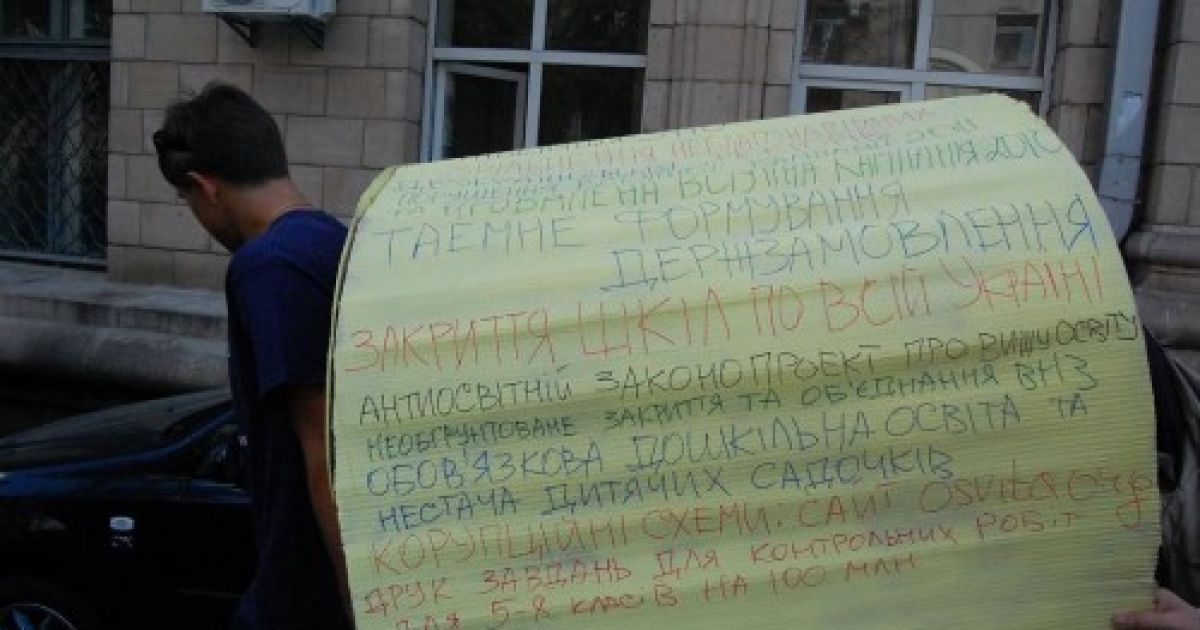 ТА ПРОВАЛЕНА ВСТУПНА КАМПАНІЯ 2010
ТАЕМНЕ ФОРМУВАННЯ
ДЕРЖЗАМОВЛЕННЯ
ЗАКРИТТЯ ШКІЛ ПО ВСІЙ УКРАЇНІ
АНТИОСВІТНІЙ ЗАКОНОПРОЕКТ ПРО ВИЩУ ОСВІТУ
НЕОБГРУНТОВАНЕ ЗАКРИТТЯ ТА ОБ'ЄДНАННЯ ВНЗ
ОБОВ'ЯЗКОВА ДОШКІЛЬНА ОСВІТА ТА
НЕСТАЧА ДИТЯЧИХ САДОЧКІВ
КОРУПЦІЙНІ СХЕМИ: САЙТ osvita.org
ДРУК ЗАВДАНЬ ДЛЯ КОНТРОЛЬНИХ РОБІТ
ДЛЯ 5-8 КЛАСІВ НА 100 МЛН